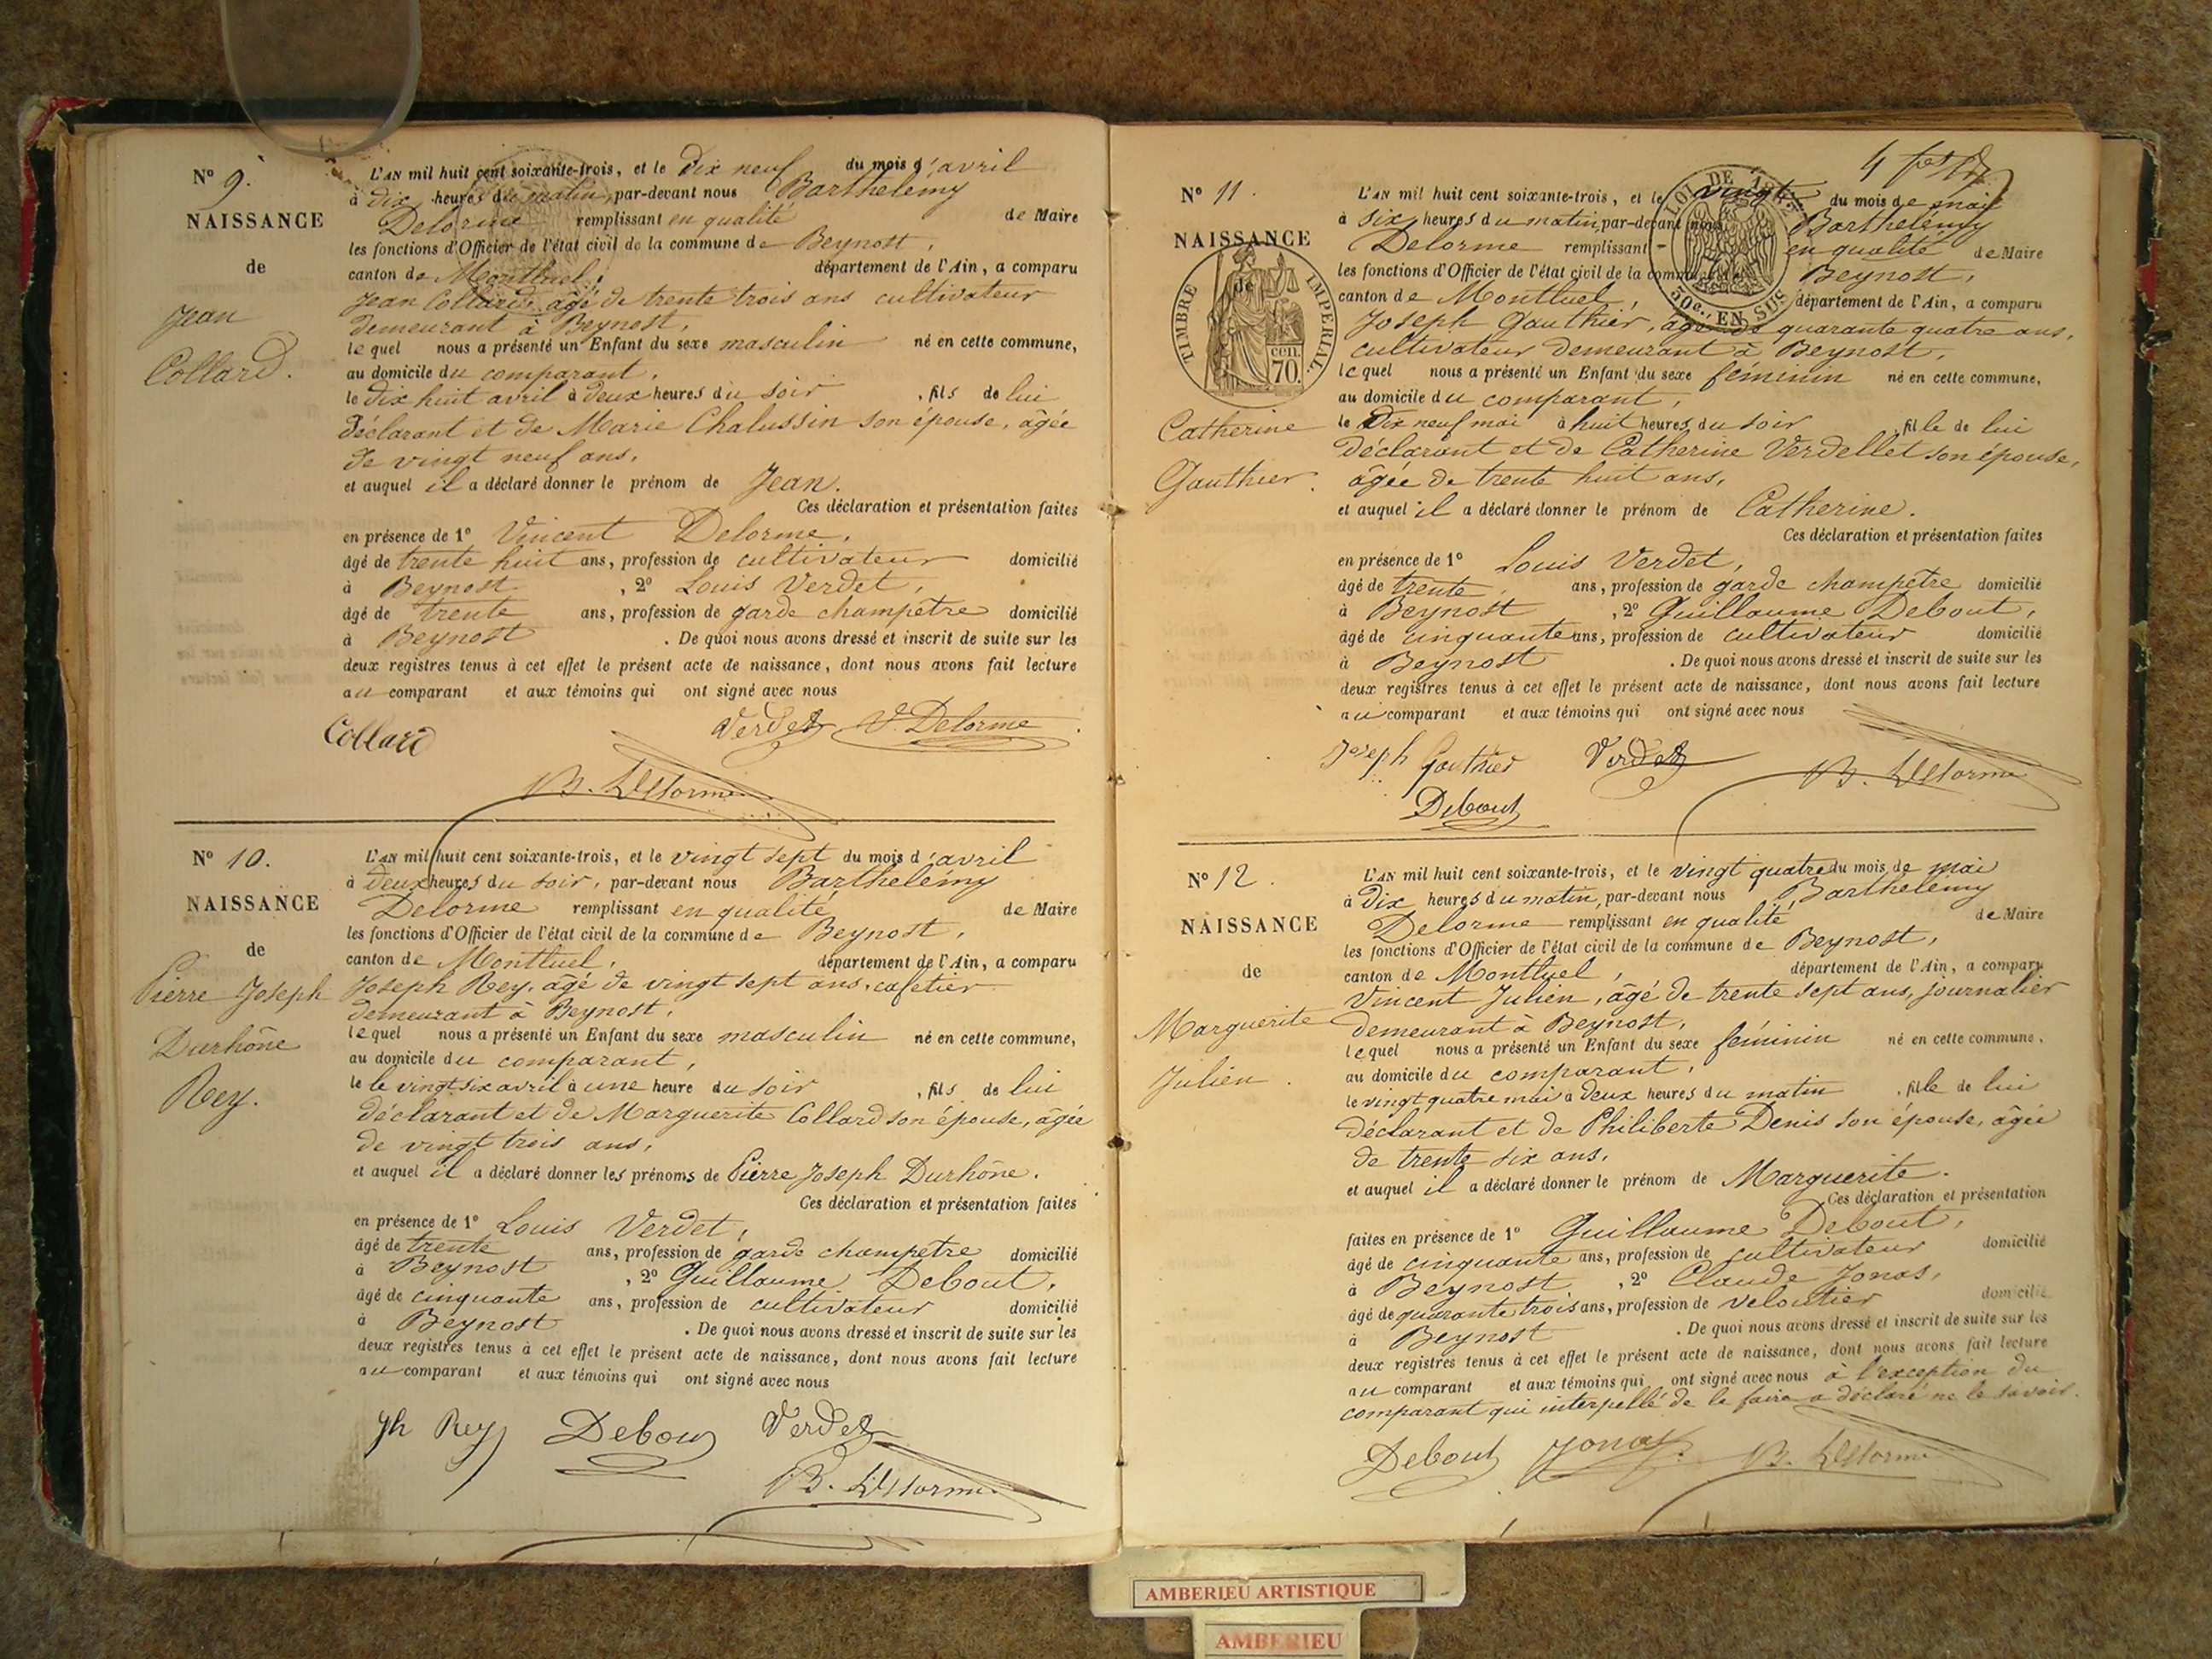 Nº 9.
NAISSANCE
de
Jean
Collard.
L'AN mil huit cent soixante-trois, et le Dix neuf du mois d'avril
à Dix heures du matin, par-devant nous Barthelémy
Delorme remplissant en qualité de Maire
les fonctions d'Officier de l'état civil de la commune de Beynost,
canton de Montluel, département de l'Ain, a comparu
Jean Collard, âgé de trente trois ans cultivateur
demeurant à Beynost,
lequel nous a présenté un Enfant du sexe masculin né en cette commune,
au domicile du comparant,
le dix huit avril à deux heures du soir, fils de lui
déclarant et de Marie Chalussin son épouse, âgée
de vingt neuf ans,
et auquel il a déclaré donner le prénom de Jean.
Ces déclaration et présentation faites
en présence de 1º Vincent Delorme,
âgé de trente huit ans, profession de cultivateur domicilié
à Beynost, 2º Louis Verdet,
âgé de trente ans, profession de garde champêtre domicilié
à Beynost. De quoi nous avons dressé et inscrit de suite sur les
deux registres tenus à cet effet le présent acte de naissance, dont nous avons fait lecture
au comparant et aux témoins qui ont signé avec nous
Collard Verdet V. Delorme
B. Delorme
Nº 10.
NAISSANCE
de
Pierre Joseph
Durhône
Rey.
L'AN mil huit cent soixante-trois, et le vingt sept du mois d'avril
à Deux heures du soir, par-devant nous Barthelémy
Delorme remplissant en qualité de Maire
les fonctions d'Officier de l'état civil de la commune de Beynost,
canton de Montluel, département de l'Ain, a comparu
Joseph Rey, âgé de vingt sept ans, cafetier
demeurant à Beynost,
lequel nous a présenté un Enfant du sexe masculin né en cette commune,
au domicile du comparant,
le le vingt six avril à une heure du soir, fils de lui
déclarant et de Marguerite Collard son épouse, âgée
de vingt trois ans,
et auquel il a déclaré donner les prénoms de Pierre Joseph Durhône.
Ces déclaration et présentation faites
en présence de 1º Louis Verdet,
âgé de trente ans, profession de garde champêtre domicilié
à Beynost, 2º Guillaume Debout,
âgé de cinquante ans, profession de cultivateur domicilié
à Beynost. De quoi nous avons dressé et inscrit de suite sur les
deux registres tenus à cet effet le présent acte de naissance, dont nous avons fait lecture
au comparant et aux témoins qui ont signé avec nous
Jh Rey Debout Verdet
B. Delorme
Nº 11.
NAISSANCE
de
TIMBRE IMPERIAL
cen. 70.
Catherine
Gauthier.
LOI DE
30c. EN SUS
L'AN mil huit cent soixante-trois, et le vingt du mois de mai
à six heures du matin, par-devant nous Barthelémy
Delorme remplissant en qualité de Maire
les fonctions d'Officier de l'état civil de la commune de Beynost,
canton de Montluel, département de l'Ain, a comparu
Joseph Gauthier, âgé de quarante quatre ans,
cultivateur demeurant à Beynost,
lequel nous a présenté un Enfant du sexe féminin né en cette commune,
au domicile du comparant,
le Dix neuf mai à huit heures du soir, fille de lui
déclarant et de Catherine Verdellet son épouse,
âgée de trente huit ans,
et auquel il a déclaré donner le prénom de Catherine.
Ces déclaration et présentation faites
en présence de 1º Louis Verdet,
âgé de trente, ans, profession de garde champêtre domicilié
à Beynost, 2º Guillaume Debout,
âgé de cinquante ans, profession de cultivateur domicilié
à Beynost. De quoi nous avons dressé et inscrit de suite sur les
deux registres tenus à cet effet le présent acte de naissance, dont nous avons fait lecture
au comparant et aux témoins qui ont signé avec nous
Joseph Gauthier Verdet B. Delorme
Debout
Nº 12.
NAISSANCE
de
Marguerite
Julien.
L'AN mil huit cent soixante-trois, et le vingt quatre du mois de mai
à Dix heures du matin, par-devant nous Barthelémy
Delorme remplissant en qualité de Maire
les fonctions d'Officier de l'état civil de la commune de Beynost,
canton de Montluel, département de l'Ain, a comparu
Vincent Julien, âgé de trente sept ans, journalier
demeurant à Beynost,
lequel nous a présenté un Enfant du sexe féminin né en cette commune,
au domicile du comparant,
le vingt quatre mai à Deux heures du matin, fille de lui
déclarant et de Philiberte Denis son épouse, âgée
de trente six ans,
et auquel il a déclaré donner le prénom de Marguerite.
Ces déclaration et présentation
faites en présence de 1º Guillaume Debout,
âgé de cinquante ans, profession de cultivateur domicilié
à Beynost, 2º Claude Jonas,
âgé de quarante trois ans, profession de veloutier domicilié
à Beynost. De quoi nous avons dressé et inscrit de suite sur les
deux registres tenus à cet effet le présent acte de naissance, dont nous avons fait lecture
au comparant et aux témoins qui ont signé avec nous à l'exception du
comparant qui interpellé de le faire a déclaré ne le savoir.
Debout Jonas B. Delorme
AMBERIEU ARTISTIQUE
AMBERIEU